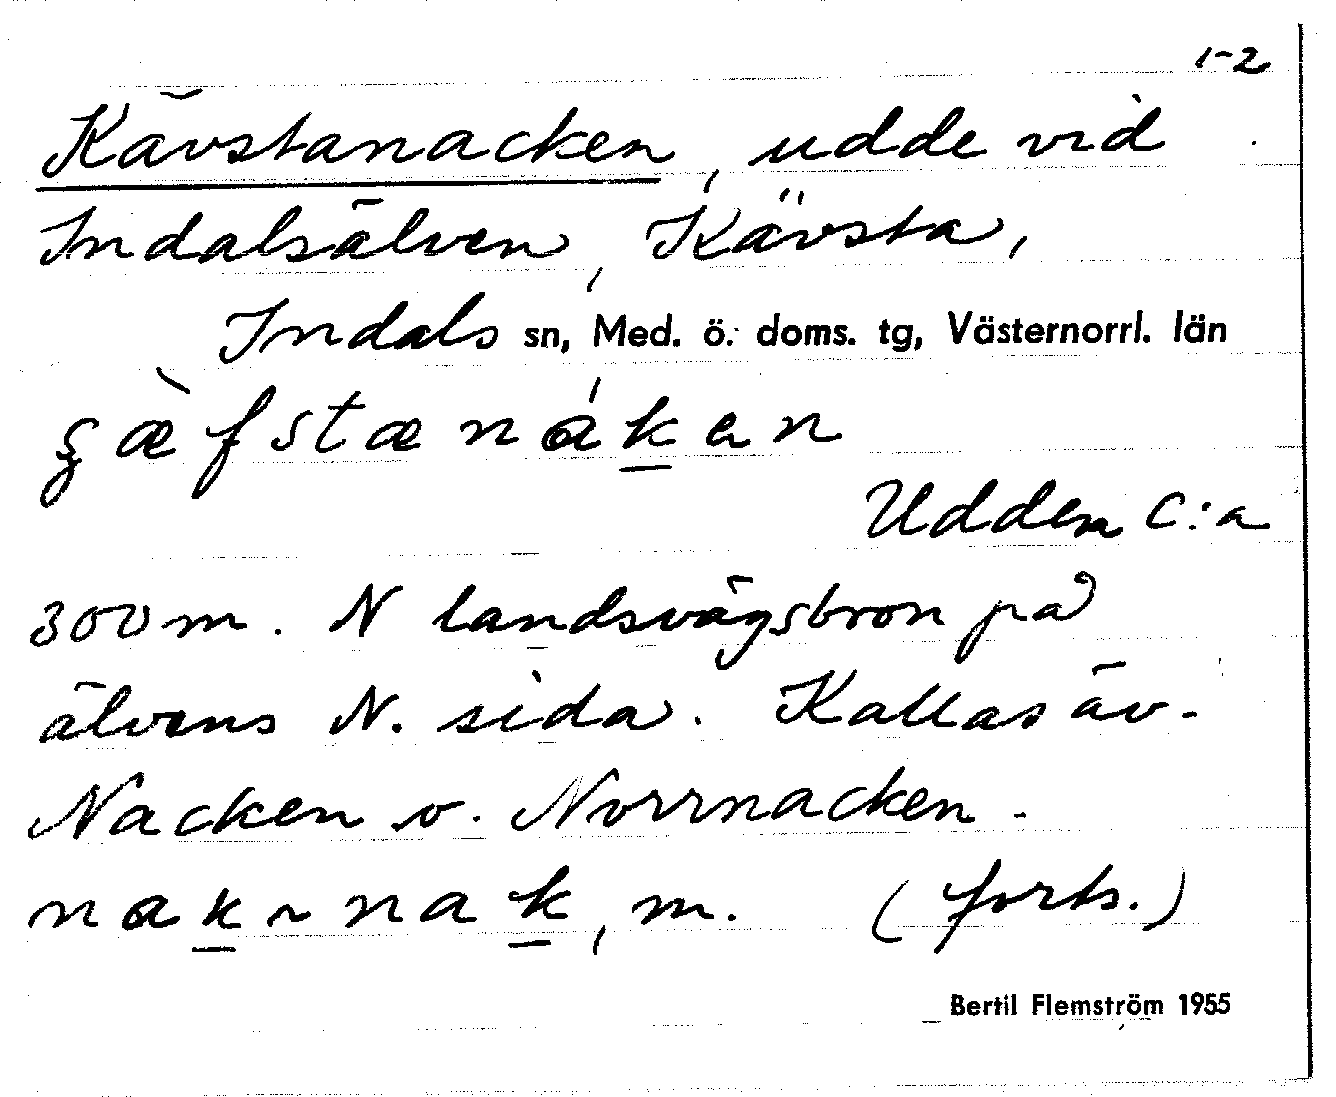 1-2
Kävstanacken, udde vid
Indalsälven, Kävsta,
Indals sn, Med. ö. doms. tg, Västernorrl. län
fstænákan
Udden c:a
300 m. N landsvägsbron på
älvens N. sida. Kallas äv.
Nacken o. Norrnacken.
nak ~ nak, m. (forts.)
Bertil Flemström 1955